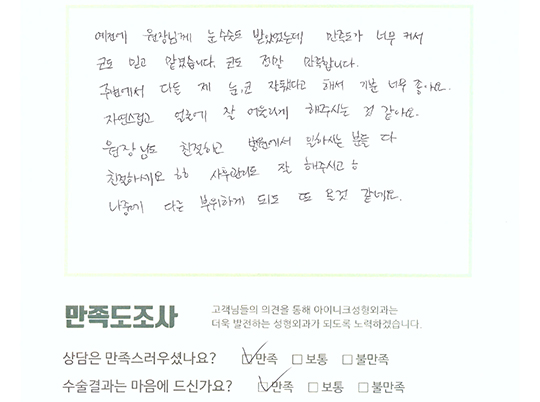 예전에 원장님께 눈수술도 받았었는데 만족도가 너무 커서
코도 믿고 맡겼습니다. 코도 정말 만족합니다.
주변에서 다들 제 눈,코 잘됐다고 해서 기분 너무 좋아요.
자연스럽고 얼굴에 잘 어울리게 해주시는 것 같아요.
원장님도 친절하고 병원에서 일하시는 분들 다
친절하세요 ㅎㅎ 사후관리도 잘 해주시고 ㅎ
나중에 다른 부위하게 되도 또 올것 같네요.
만족도조사
고객님들의 의견을 통해 아이니크성형외과는
더욱 발전하는 성형외과가 되도록 노력하겠습니다.
상담은 만족스러우셨나요? ☑만족 □보통 □불만족
수술결과는 마음에 드신가요? ☑만족 □보통 □불만족